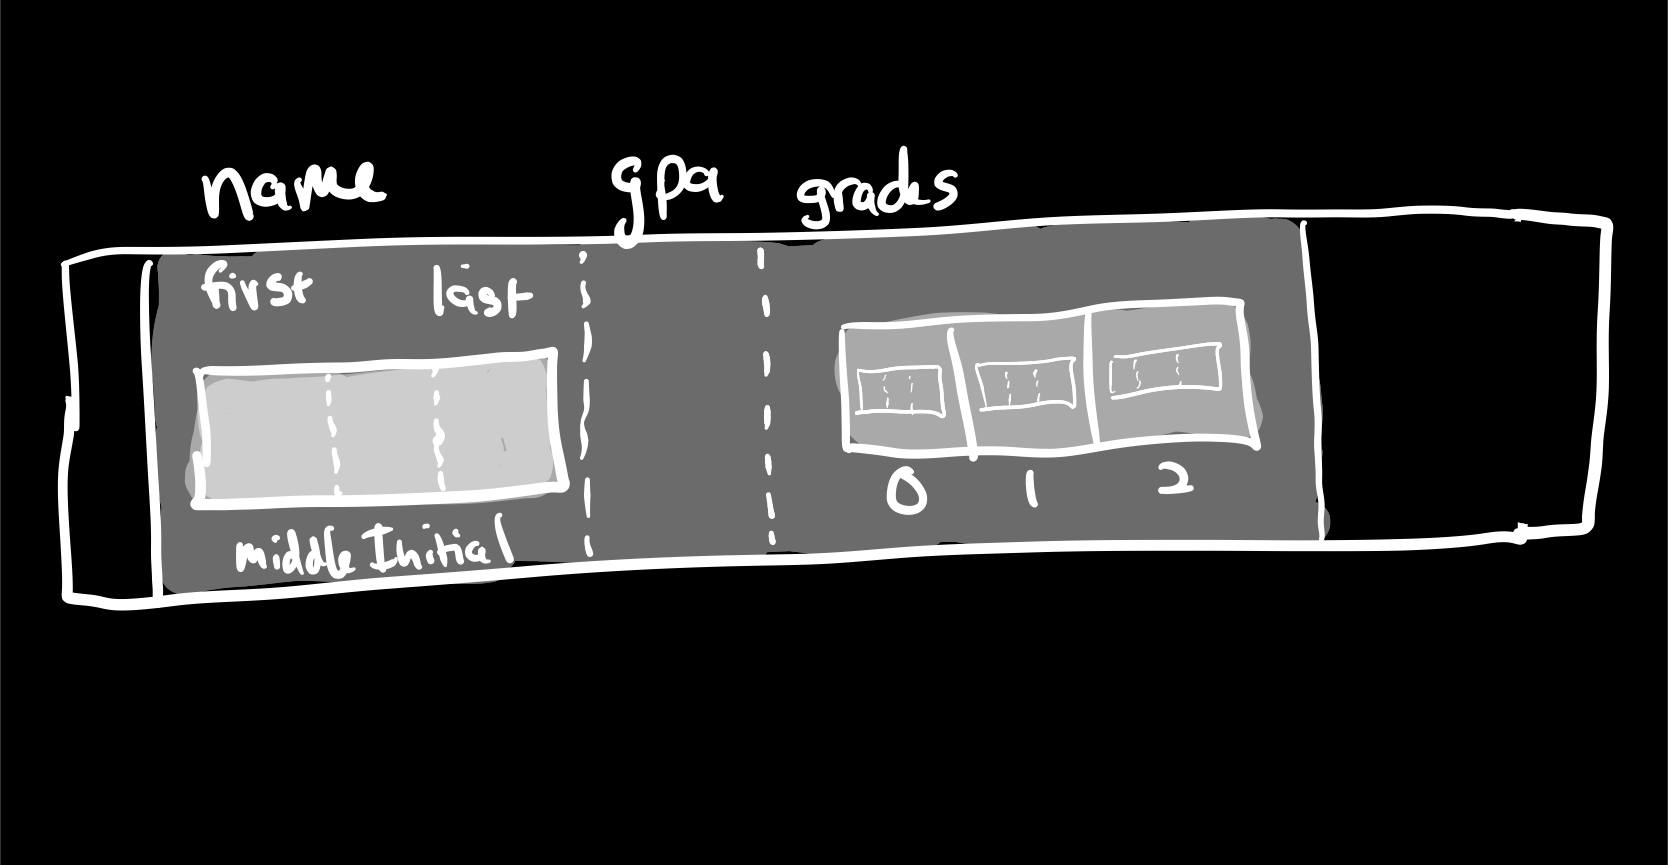 name gpa grades
first last
middle Initial
0 1 2